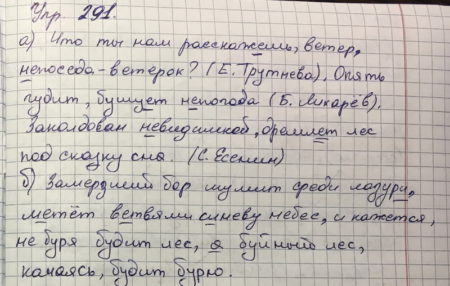 Упр. 291.
а) Что ты нам расскажешь, ветер,
непоседа-ветерок? (Е. Трутнева). Опять
гудит, бушует непогода (Б. Лихарёв).
Заколдован невидимкой, дремлет лес
под сказку сна. (С. Есенин)
б) Замерзший бор шумит среди лазури,
метёт ветвями синеву небес, и кажется,
не буря будит лес, а буйный лес,
качаясь, будит бурю.